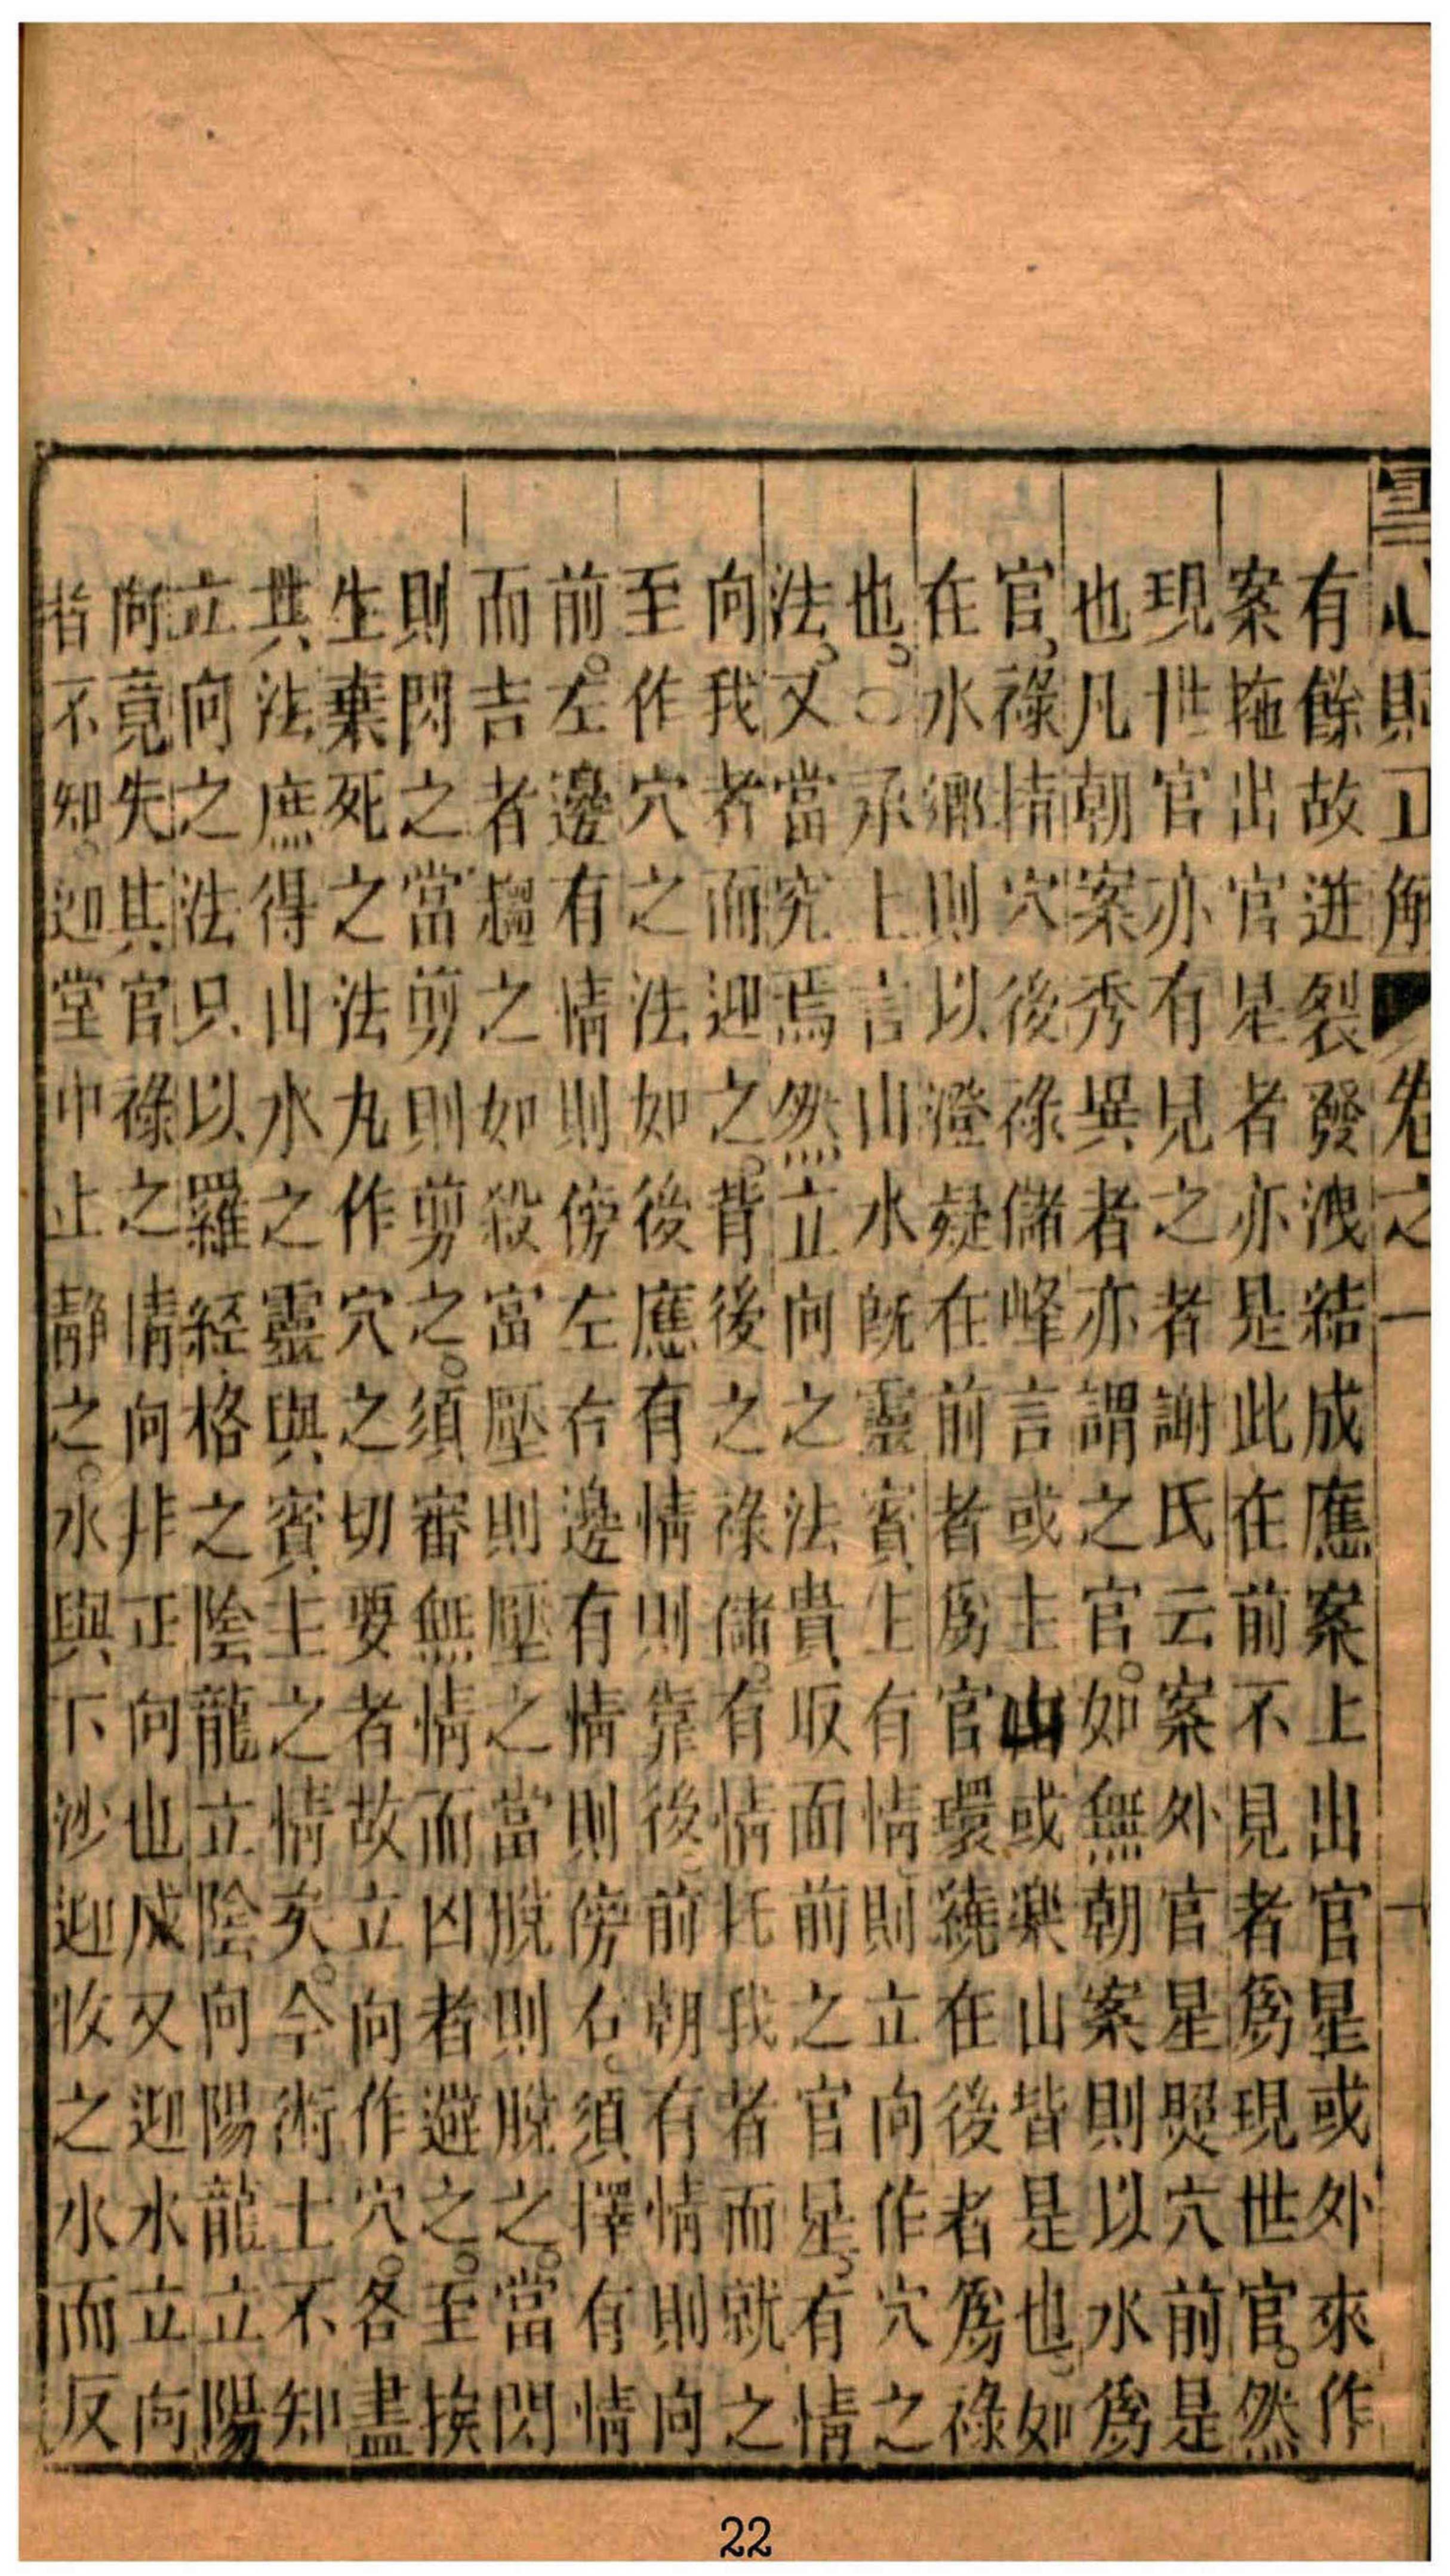 雪心賦正解 卷之一
有餘故迸裂發洩結成應案上出官星或外來作
案拖出官星者亦是此在前不見者爲現世官然
現世官亦有見之者謝氏云案外官星煛穴前是
也凡朝案秀異者亦謂之官如無朝案則以水爲
官祿情穴後祿儲峰言或主山或樂山皆是也如
在水鄉則以澄凝在前者爲官環繞在後者爲祿
也○承上言山水既靈賓主有情則立向作穴之
法又當究焉然立向之法貴取面前之官星有情
向我者而迎之背後之祿儲有情托我者而就之
至作穴之法如後應有情則靠後前朝有情則向
前左邊有情則傍左右邊有情則傍右須擇有情
而吉者趨之如殺當壓則壓之當脫則脫之當閃
則閃之當剪則剪之須審無情而凶者避之至挨
生棄死之法尤作穴之切要者故立向作穴各盡
其法庶得山水之靈與賓主之情矣今術士不知
立向之法只以羅經格之陰龍立陰向陽龍立陽
向竟失其官祿之情向非正向也成又迎水立向
者不知迎堂中止靜之水與下沙迎收之水而反
22